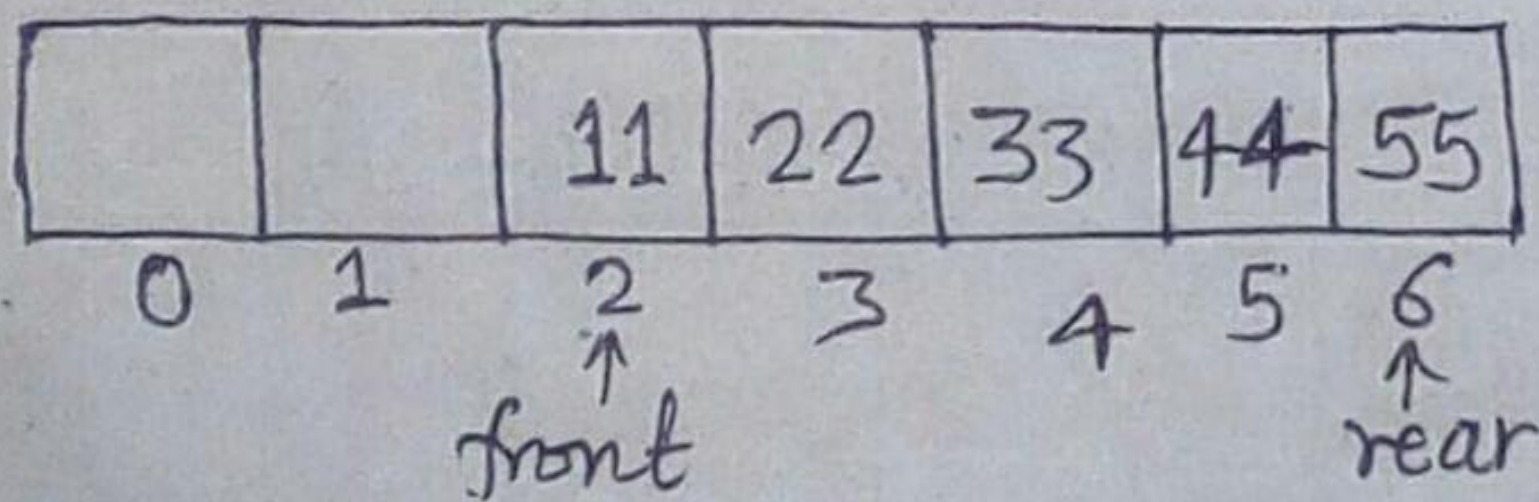 11 22 33 44 55
0 1 2 3 4 5 6
↑ ↑
front rear